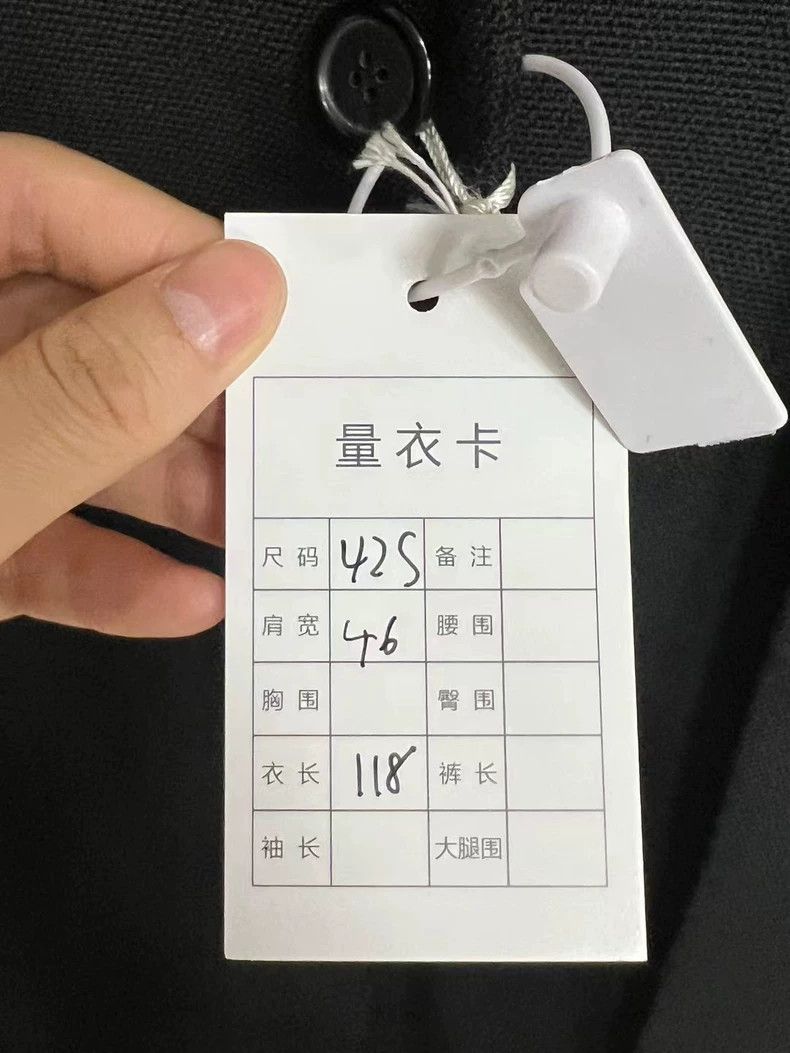 量衣卡
尺码 42S 备注
肩宽 46 腰围
胸围 臀围
衣长 118 裤长
袖长 大腿围